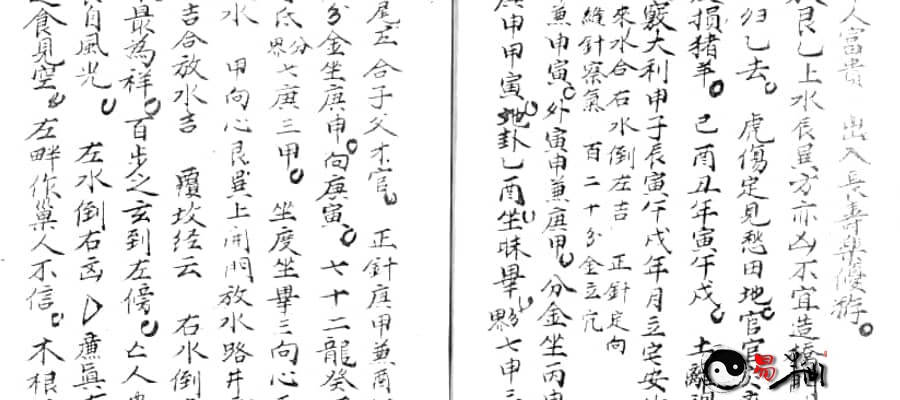 人富貴 出入長壽樂優游
艮乙上水辰巽方亦凶不宜造橋
归乙去 虎傷定見愁田地官
損猪羊 己酉丑年寅午戌 土
竅大利甲子辰寅午戌年月立宅安
來水合右水倒左吉 正針定向
縫針察氣 百二十分金立穴
兼申寅 外寅申兼庚甲 分金坐丙申
庚申甲寅 地卦乙酉坐昧畢 界七申三
尾云合子父才官 正針庚甲兼酉
分金坐庚申向庚寅 七十二龍癸
氏分界七庚三甲 坐度坐畢三向心
水 甲向心艮巽上開門放水路井
吉合放水吉 覆坟经云 右水倒
最為祥 百步之玄到左傍 亡人
自風光 左水倒右凶 廉眞
食見空 左畔作巢人不信 木根
易